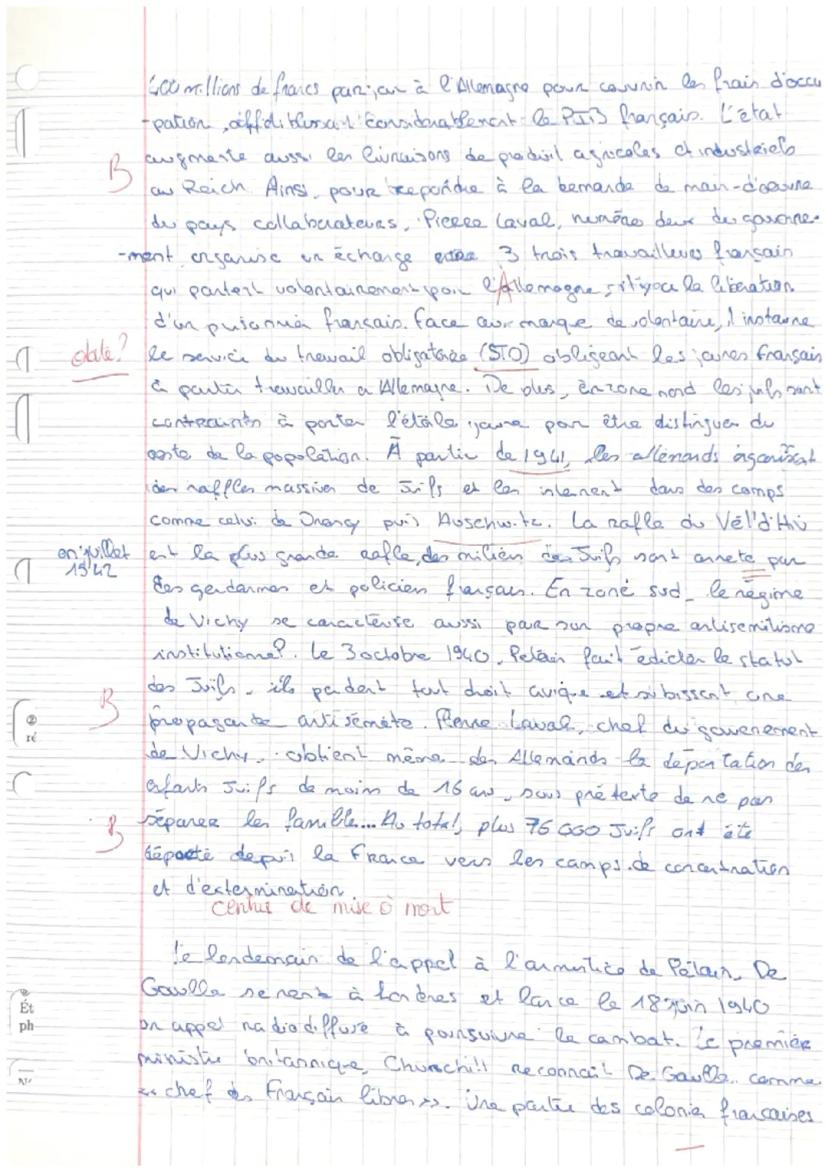 400 millions de francs par jour à l'Allemagne pour couvrir les frais d'occu
-pation, affaiblissant considérablement le PIB français. L'état
B
augmente aussi les livraisons de produit agricoles et industriels
au Reich. Ainsi, pour repondre à la demande de main-d'œuvre
du pays collaborateurs, Pierre Laval, numéro deux du gouverne-
-ment organise un échange entre 3 trois travailleurs français
qui partent volontairement pour l'Allemagne la libération
d'un prisonnier français. Face au manque de volontaire, il instaure
date?
le service du travail obligatoire (STO) obligeant les jeunes français
à partir travailler a Allemagne. De plus, en zone nord les juifs sont
contraints à porter l'étoile jaune pour être distinguer du
reste de la population. À partir de 1941, les allemands organisent
des raffles massives de Juifs et les internent dans des camps
comme celui de Drancy puis Auschwitz. La rafle du Vél'd'Hiv
en juillet 1942
est la plus grande rafle, des milliers des Juifs sont arrete par
des gendarmes et policien français. En zone sud, le régime
de Vichy se caractérise aussi par son propre antisemitisme
institutionnel. Le 3 octobre 1940, Pétain fait édicter le statut
des Juifs, ils perdent tout droit civique et subissent une
B
propagande antisémète. Pierre Laval, chef du gouvernement
de Vichy, obtient même des Allemands la déportation des
enfants Juifs de moins de 16 ans, sous prétexte de ne pas
B
séparer les famille... Au total, plus 76 000 Juifs ont été
déporté depuis la France vers les camps de concentration
et d'extermination
centres de mise à mort
Le lendemain de l'appel à l'armistice de Pétain, De
Gaulle se rend à Londres et lance le 18 juin 1940
Ét
un appel radiodiffusé à poursuivre le combat. Le première
ph
ministre britannique, Churchill reconnait De Gaulle comme
« chef des Français libres ». Une partie des colonie françaises